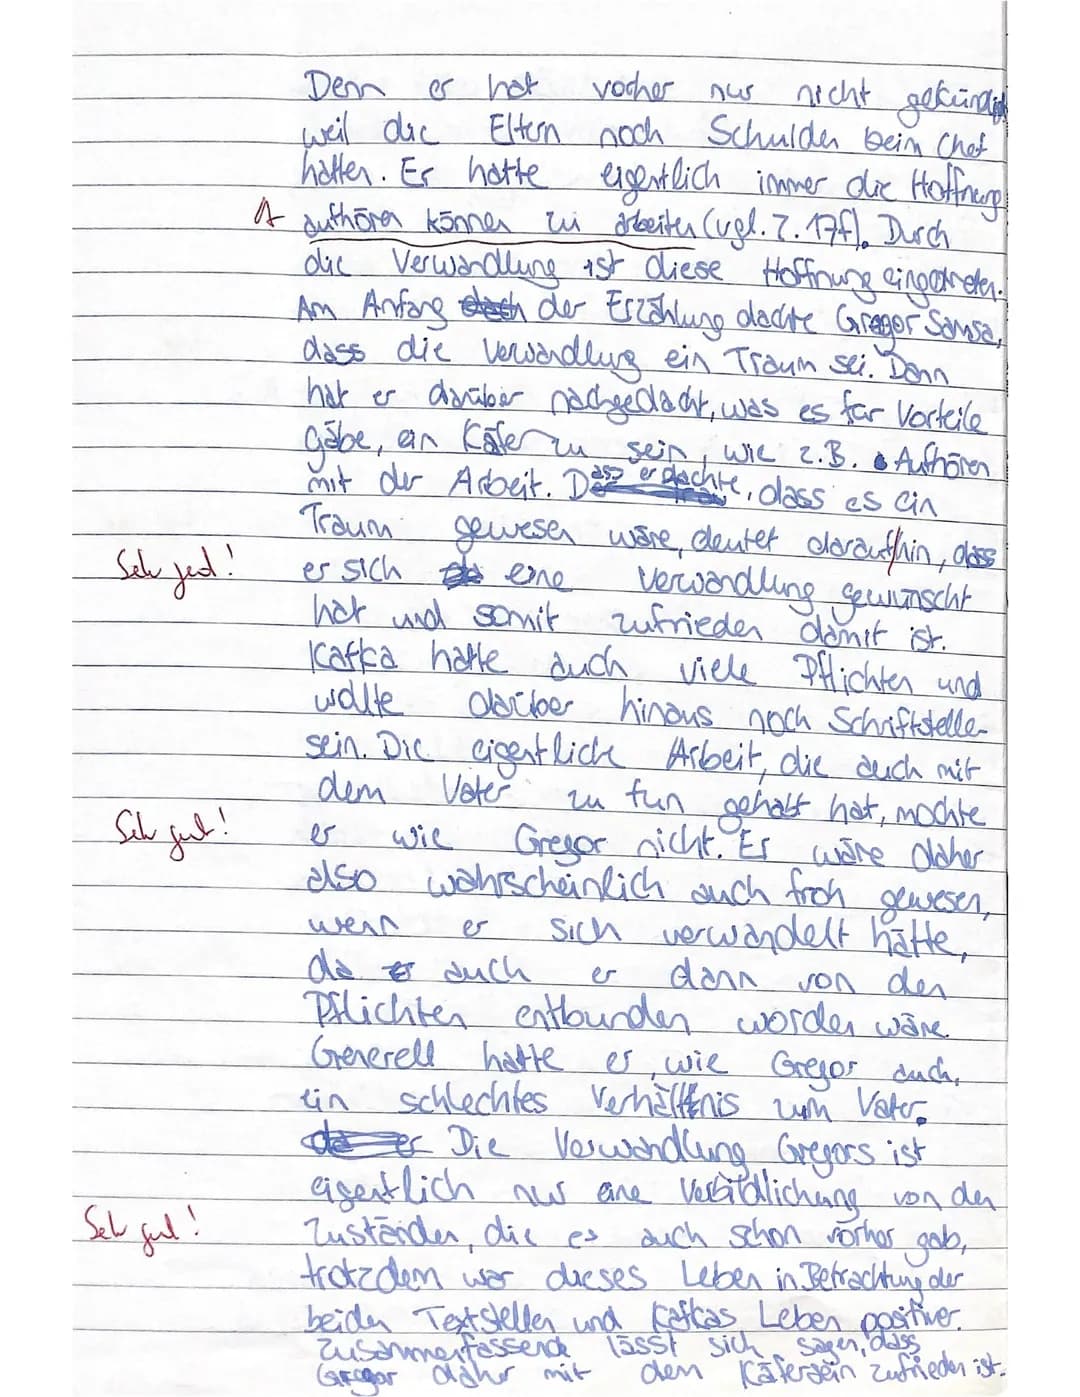 Denn er hat vorher nur nicht gekündigt
weil die Eltern noch Schulden beim Chef
hatten. Er hatte eigentlich immer die Hoffnung
A aufhören können zu arbeiten (vgl. Z. 17f). Durch
die Verwandlung ist diese Hoffnung eingetreten.
Am Anfang der Erzählung dachte Gregor Samsa,
dass die Verwandlung ein Traum sei. Dann
hat er darüber nachgedacht, was es für Vorteile
gäbe, ein Käfer zu sein, wie z.B. Aufhören
mit der Arbeit. Dass er dachte, dass es ein
Traum gewesen wäre, deutet daraufhin, dass
Sehr gut! er sich eine Verwandlung gewünscht
hat und somit zufrieden damit ist.
Kafka hatte auch viele Pflichten und
wollte darüber hinaus noch Schriftsteller
sein. Die eigentliche Arbeit, die auch mit
dem Vater zu tun gehabt hat, mochte
Sehr gut! er wie Gregor nicht. Er wäre daher
also wahrscheinlich auch froh gewesen,
wenn er sich verwandelt hätte,
da auch er dann von den
Pflichten entbunden worden wäre.
Generell hatte er, wie Gregor auch,
ein schlechtes Verhältnis zum Vater.
Die Verwandlung Gregors ist
eigentlich nur eine Verbildlichung von den
Sehr gut! Zuständen, die es auch schon vorher gab,
trotzdem war dieses Leben in Betrachtung der
beiden Textstellen und Kafkas Leben positiver.
Zusammenfassend lässt sich sagen, dass
Gregor daher mit dem Käfersein zufrieden ist.